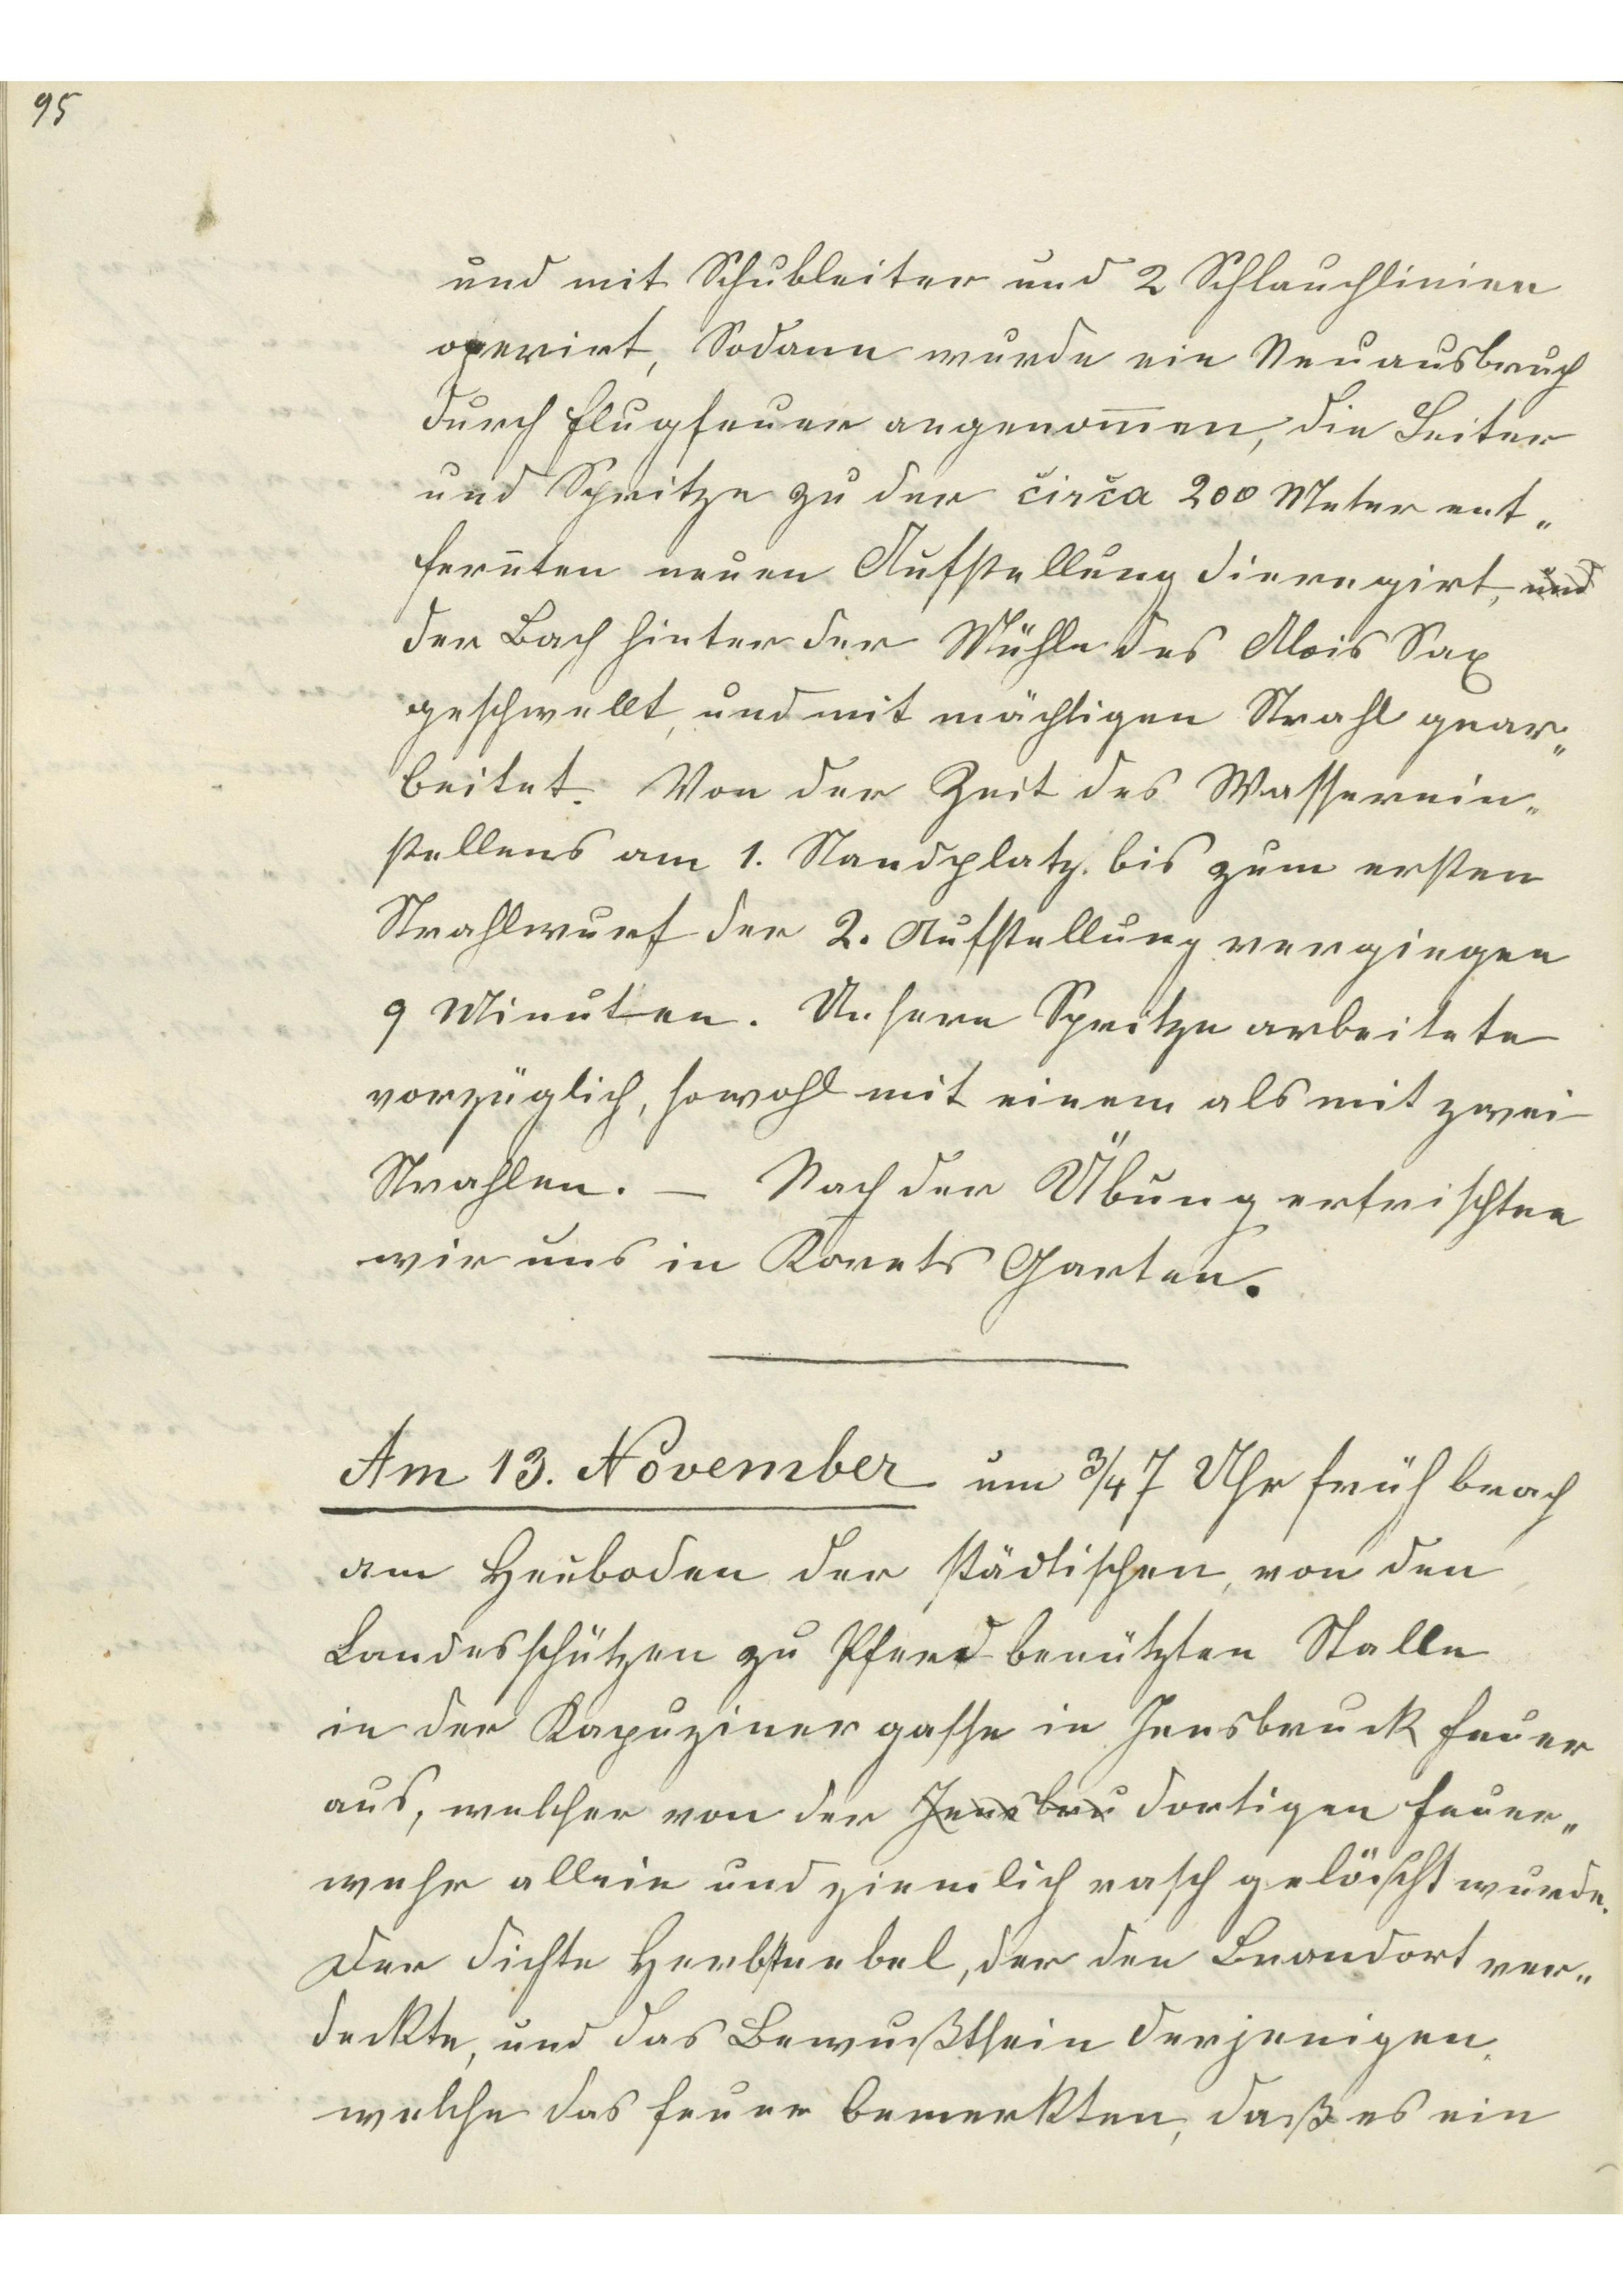 95
und mit Schubleiter und 2 Schlauchlinien
operirt, Sodann wurde ein Neuausbruch
durch Flugfeuer angenom̅en, die Leiter
und Spritze zu der circa 200 Meter ent„
fern̅ten neuen Aufstellung dieregirt, und
der Bach hinter der Mühle des Alois Sax
geschwellt, und mit mächtigen Strahl gear„
beitet. Von der Zeit des Wasserein„
stellens am 1. Standplatz bis zum ersten
Strahlwurf der 2. Aufstellung vergingen
9 Minuten. Unsere Spritze arbeitete
vorzüglich, sowohl mit einem als mit zwei
Strahlen. — Nach der Übung erfrischten
wir uns in Korets Garten.
Am 13. November um 3/4 7 Uhr früh brach
am Heuboden der städtischen, von den
Landesschützen zu Pferd benützten Stalle
in der Kapuzinergasse in Innsbruck Feuer
aus, welcher von der Innsbru dortigen Feuer„
wehr allein und ziemlich rasch gelöscht wurde.
Der dichte Herbstnebel, der den Brandort ver„
deckte, und das Bewußtsein derjenigen,
welche das Feuer bemerkten, daß es ein